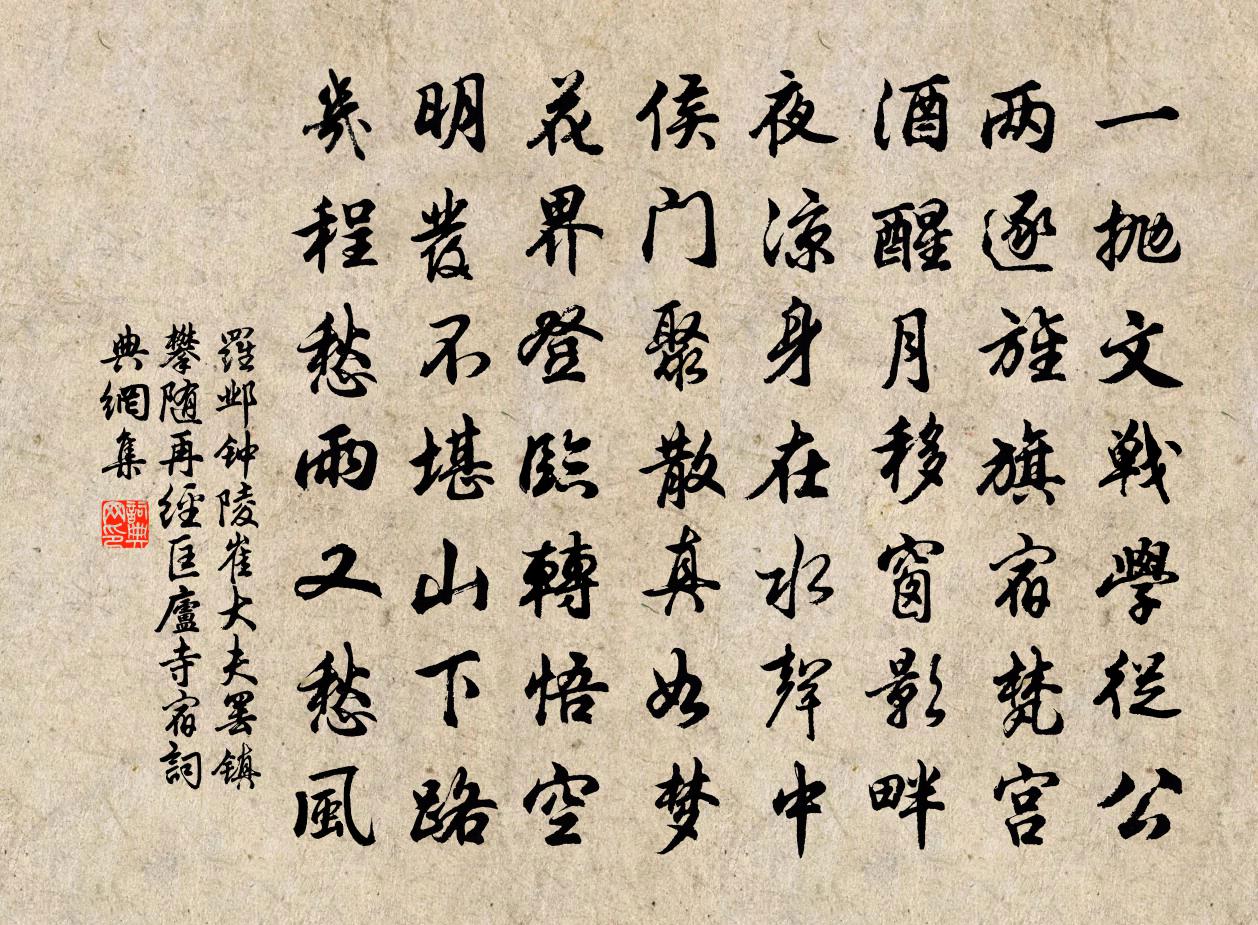 一抛文戦學從公
两逐旌旗宿梵宮
酒醒月移窗影畔
夜涼身在水聲中
侯门聚散真如梦
花界登臨轉悟空
明發不堪山下路
幾程愁雨又愁風
羅邺钟陵崔大夫罢镇
攀随再經匡廬寺宿詞
典網集
詞典网印